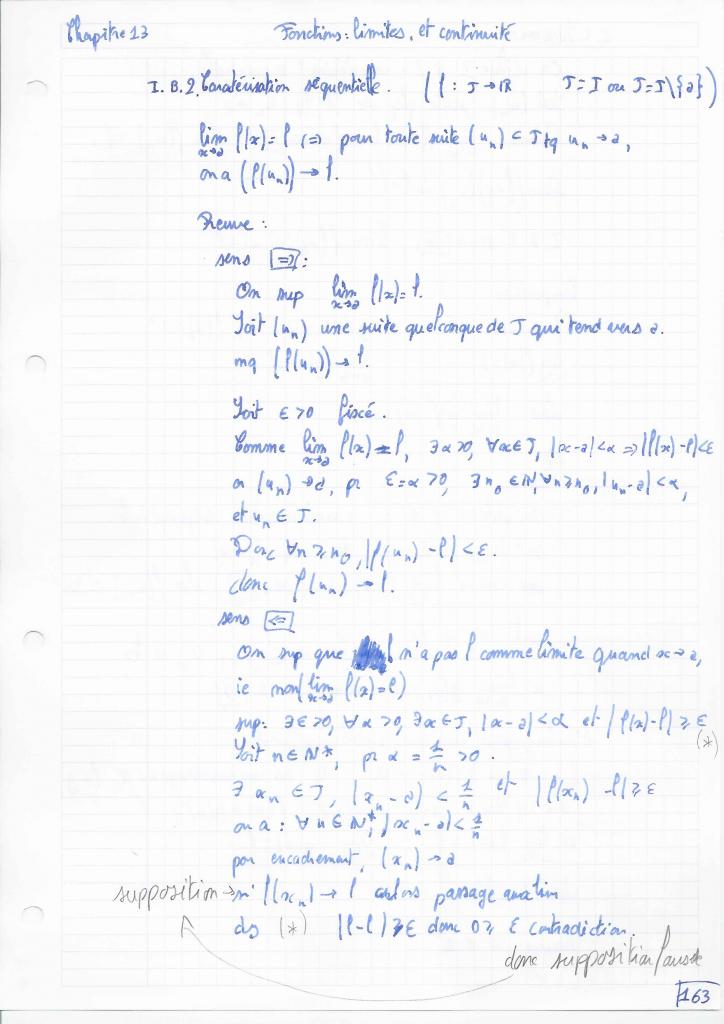 Chapitre 13 Fonctions : limites, et continuité
I. B. 2. Caratérisation séquentielle. (f : J → ℝ J = I ou J = I\{a})
lim x→a f(x) = l ⇔ pour toute suite (u_n) ⊂ J tq u_n → a,
on a (f(u_n)) → l.
Preuve :
sens ⇒ :
On sup lim x→a f(x) = l.
Soit (u_n) une suite quelconque de J qui tend vers a.
mq (f(u_n)) → l.
Soit ε > 0 fixé.
Comme lim x→a f(x) = l, ∃ α > 0, ∀x ∈ J, |x-a| < α ⇒ |f(x)-l| < ε
or (u_n) → a, pr ε = α > 0, ∃ n_0 ∈ ℕ, ∀n ≥ n_0, |u_n - a| < α,
et u_n ∈ J.
Donc ∀n ≥ n_0, |f(u_n) - l| < ε.
donc f(u_n) → l.
sens ⇐
On sup que f n'a pas l comme limite quand x → a,
ie non(lim x→a f(x) = l)
sup : ∃ ε > 0, ∀ α > 0, ∃ x ∈ J, |x-a| < α et |f(x)-l| ≥ ε
(*)
Soit n ∈ ℕ*, pr α = 1/n > 0.
∃ x_n ∈ J, |x_n - a| < 1/n et |f(x_n) - l| ≥ ε
on a : ∀ n ∈ ℕ*, |x_n - a| < 1/n
par encadrement, (x_n) → a
supposition → si f(x_n) → l alors passage à la lim
ds (*) |l-l| ≥ ε donc 0 ≥ ε contradiction.
donc supposition fausse
163